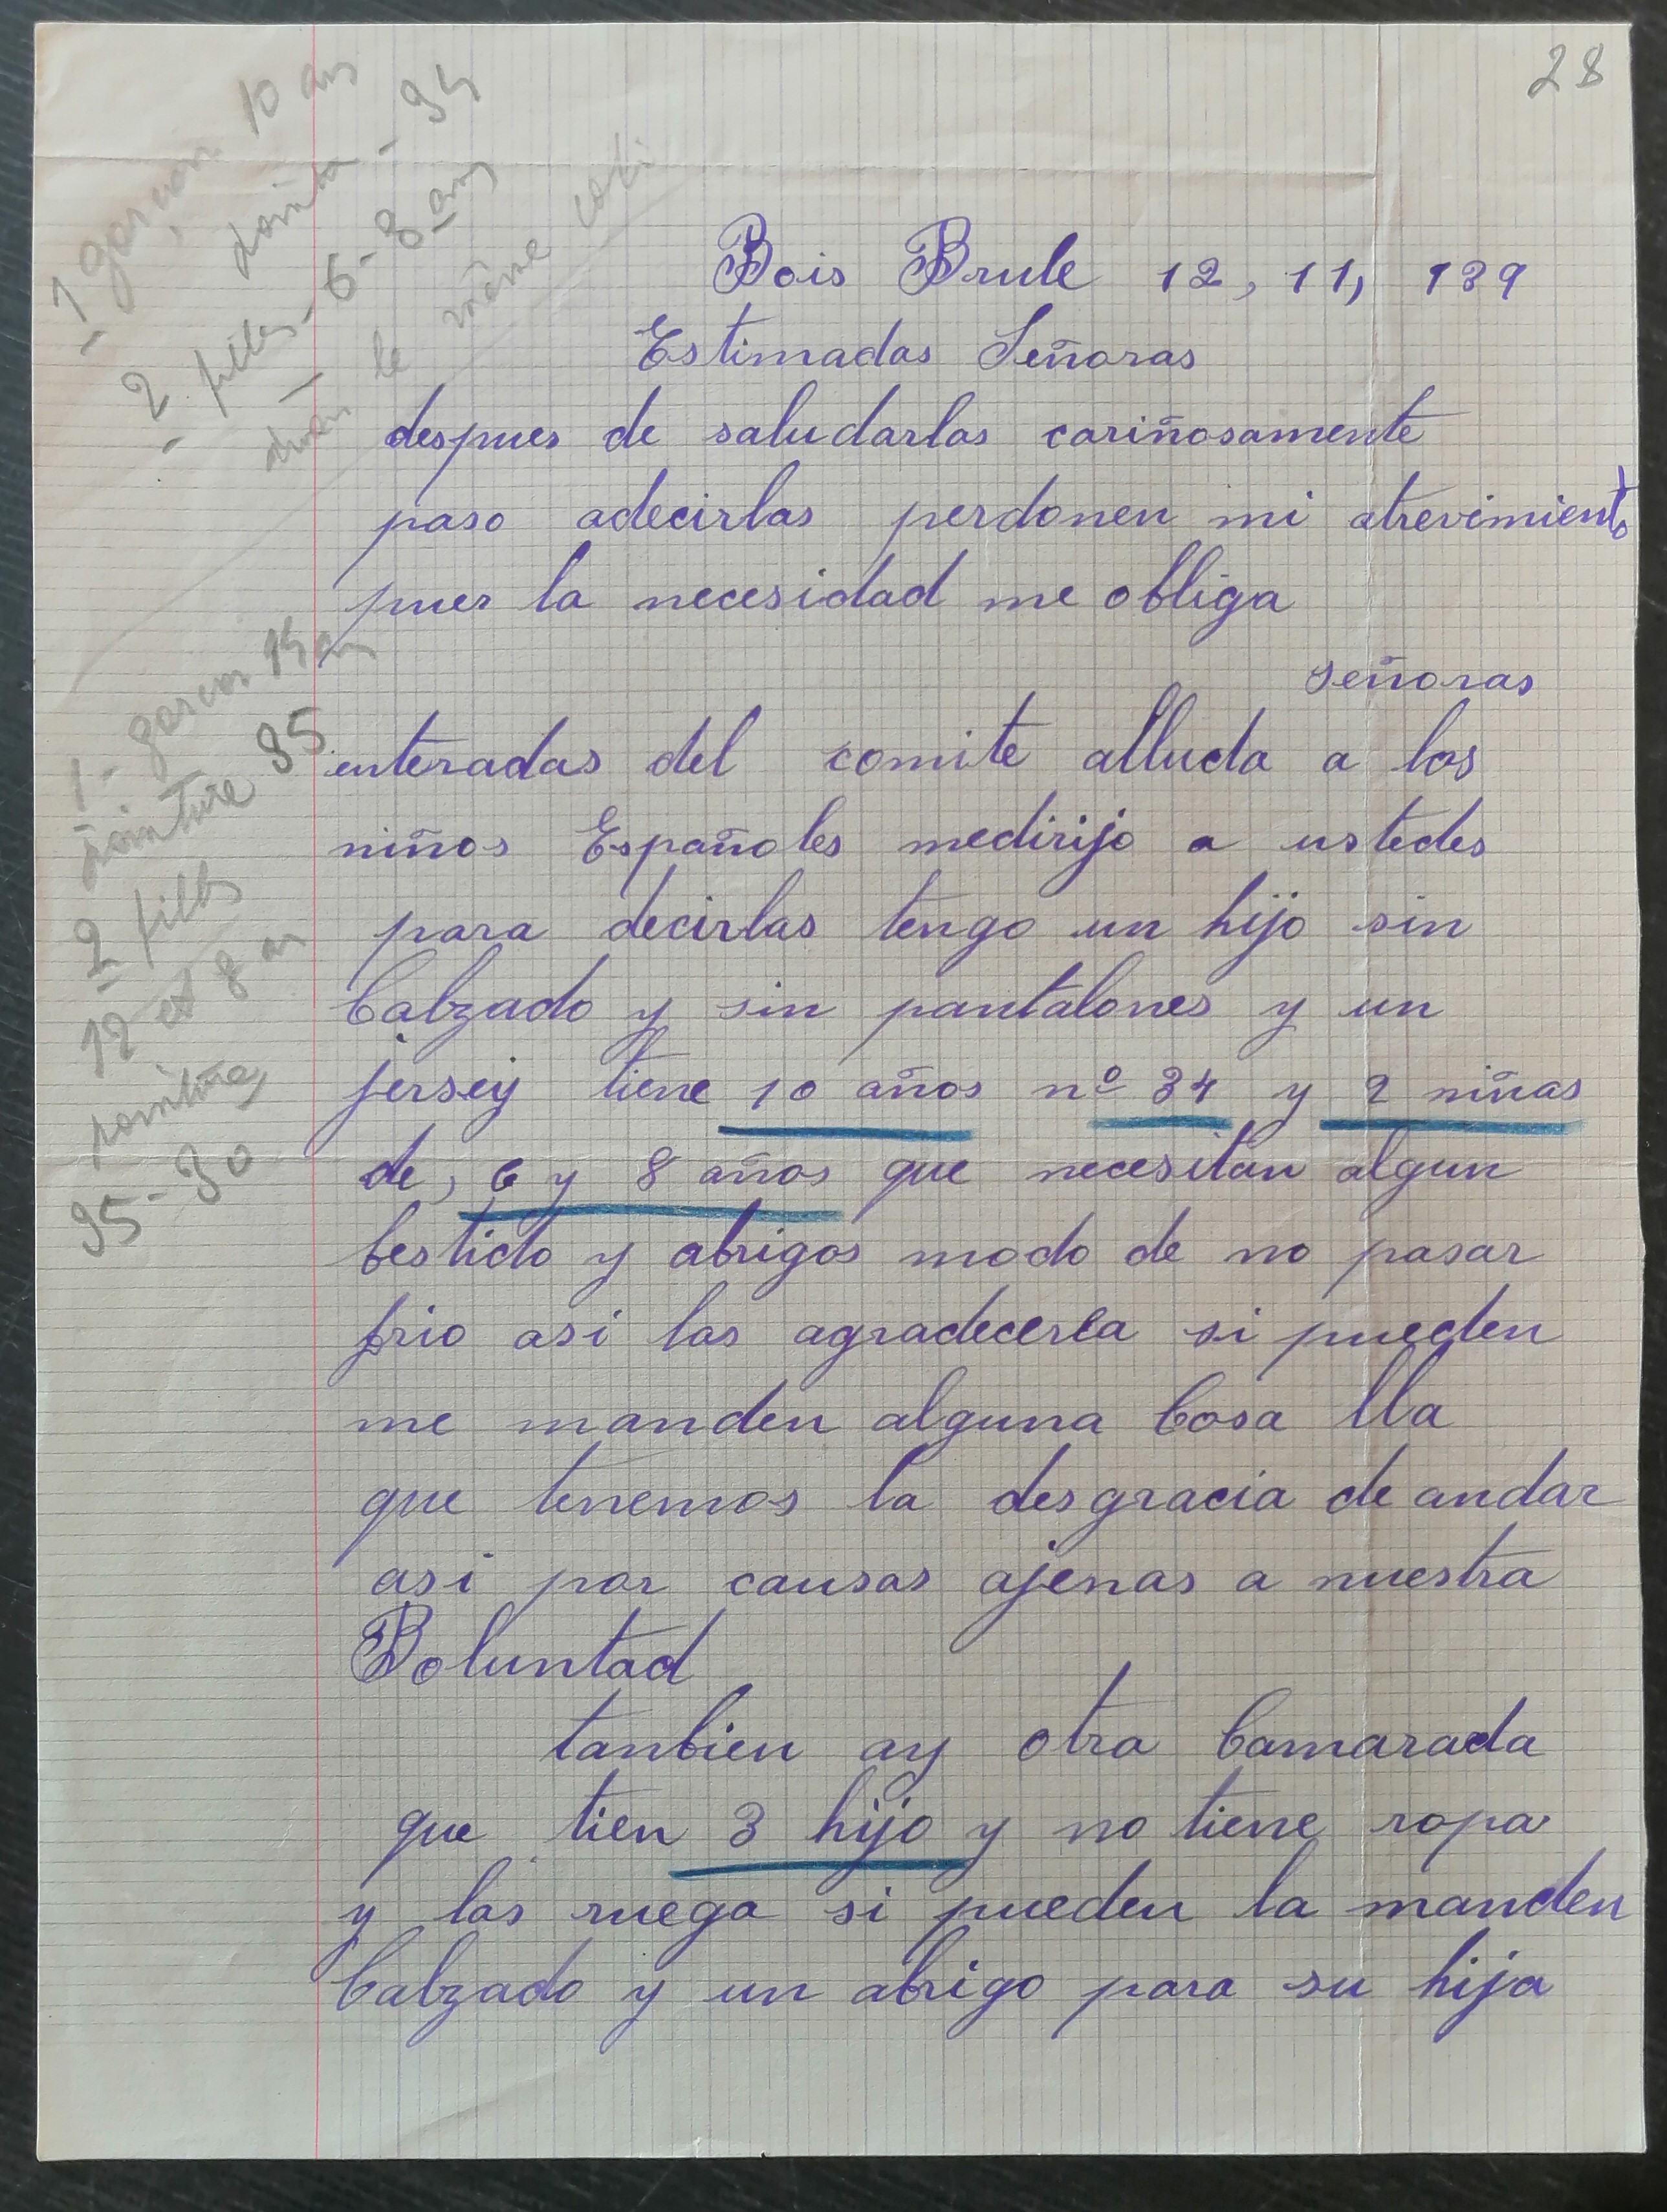 28
1 garçon 10 ans
pointure - 34
2 filles - 6 - 8 ans
dans le même colis
Bois Brule 12, 11, 139
Estimadas Señoras
despues de saludarlas cariñosamente
paso adecirlas perdonen mi atrevimiento
pues la necesidad me obliga
señoras
enteradas del comite alluda a los
niños Españoles medirijo a ustedes
para decirlas tengo un hijo sin
Calzado y sin pantalones y un
jersey tiene 10 años nº 34 y 2 niñas
de, 6 y 8 años que necesitan algun
bestido y abrigos modo de no pasar
frio asi las agradecerea si pueden
me manden alguna Cosa lla
que tenemos la desgracia de andar
asi por causas ajenas a nuestra
Boluntad
tanbien ay otra Camarada
que tien 3 hijo y no tiene ropa
y las ruega si pueden la manden
Calzado y un abrigo para su hija
1 - garçon 14 ans
pointure 35
2 filles
12 et 8 ans
pointures
35 - 30